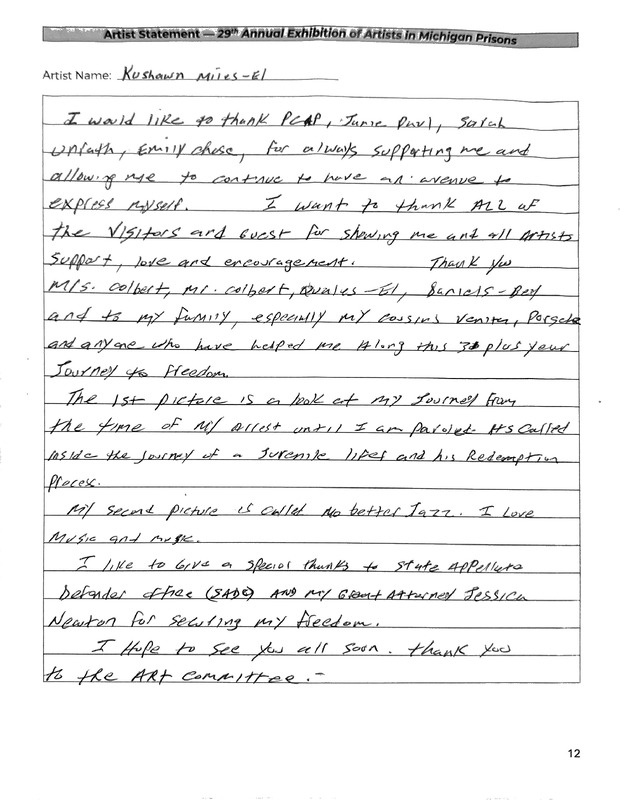 Artist Statement — 29th Annual Exhibition of Artists in Michigan Prisons
Artist Name: Kushawn Miles-El
I would like to thank PCAP, Janie Paul, Sarah
Unrath, Emily Chase, for always supporting me and
allowing me to continue to have an avenue to
express myself. I want to thank ALL of
the Visitors and Guest for showing me and all Artists
support, love and encouragement. Thank you
Mrs. Colbert, Mr. Colbert, Quales-El, Daniels-Bey
and to my family, especially my cousins Venita, Porsche
and anyone who have helped me along this 30 plus year
Journey to Freedom.
The 1st picture is a look at my Journey From
the time of my Arrest until I am paroled Its Called
Inside the Journey of a Juvenile lifer and his Redemption
Process.
My second picture is called No better Jazz. I Love
Music and
I like to Give a special thanks to State Appellate
Defender office (SADO) AND my Great Attorney Jessica
Newton for securing my freedom.
I Hope to see you all soon. thank you
to the ART committee.-
12